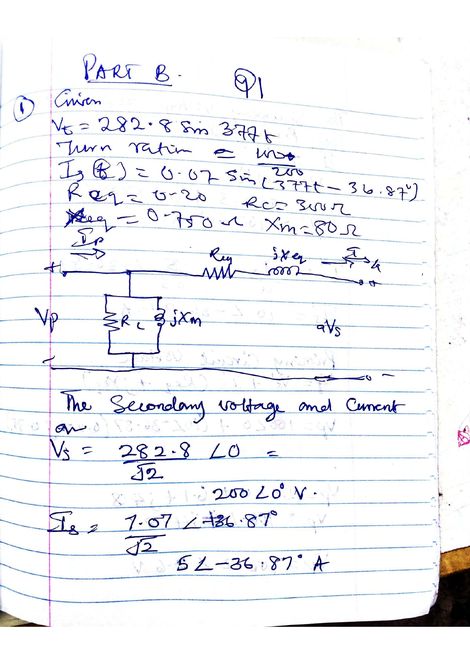 PART B. Q1
① Given
Vt = 282.8 Sin 377t
Turn ration = 100
200
Is (t) = 0.07 Sin (377t - 36.87°)
Req = 0.20 Rc = 300Ω
Xeq = 0.750 Ω Xm = 80 Ω
Ip
Req jXeq
+ +
Vp Rc jXm aVs
- -
The Secondary voltage and Current
are
Vs = 282.8 ∠0 =
√2
200∠0° V.
Is = 7.07 ∠-36.87°
√2
5∠-36.87° A